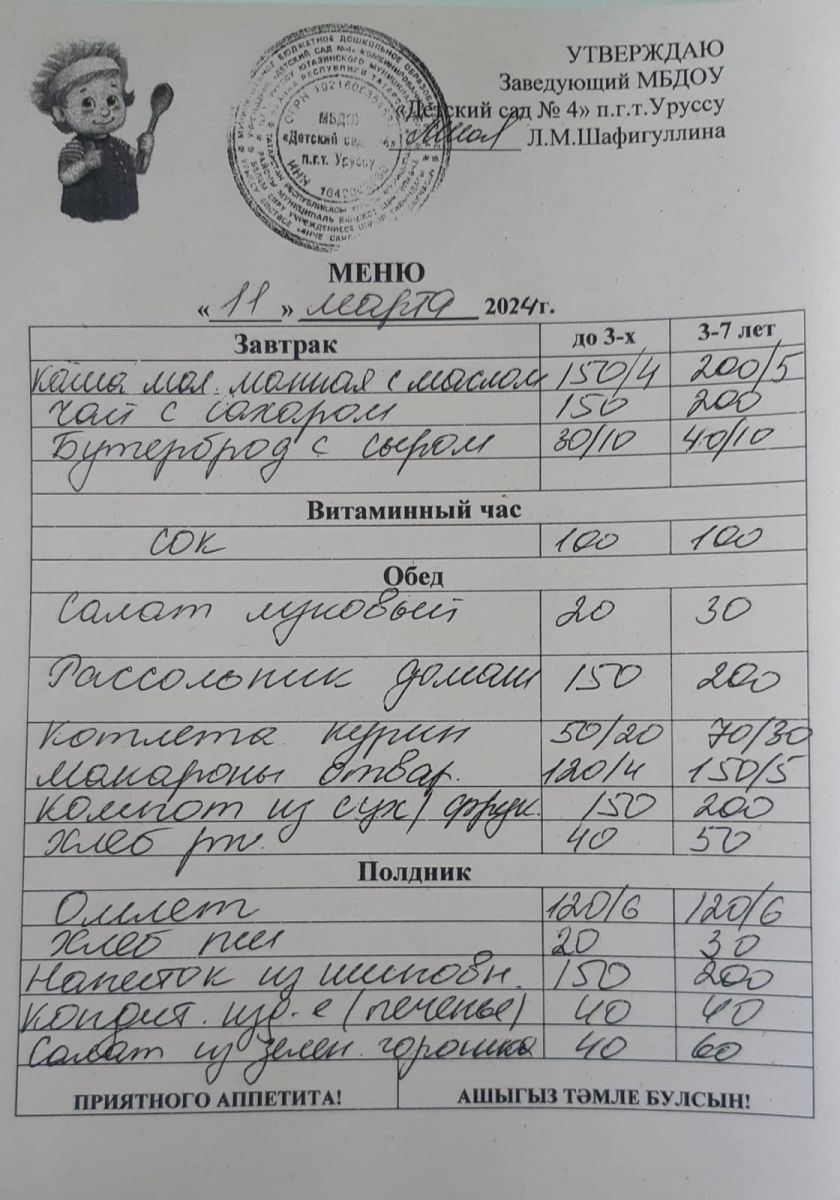 УТВЕРЖДАЮ
Заведующий МБДОУ
«Детский сад № 4» п.г.т.Уруссу
Л.М.Шафигуллина
МБДОУ
«Детский сад
п.г.т. Уруссу
МЕНЮ
« 11 » марта 2024г.
Завтрак до 3-х 3-7 лет
Каша мол. манная с маслом 150/4 200/5
Чай с сахаром 150 200
Бутерброд с сыром 30/10 40/10
Витаминный час
сок 100 100
Обед
Салат луковый 20 30
Рассольник домаш 150 200
Котлета курин 50/20 70/30
Макароны отвар. 120/4 150/5
Компот из сух/фрук. 150 200
Хлеб рж. 40 50
Полдник
Омлет 120/6 120/6
Хлеб пш 20 30
Напиток из шиповн. 150 200
Кондит. изд-е (печенье) 40 40
Салат из зелен. горошка 40 60
ПРИЯТНОГО АППЕТИТА! АШЫГЫЗ ТӘМЛЕ БУЛСЫН!